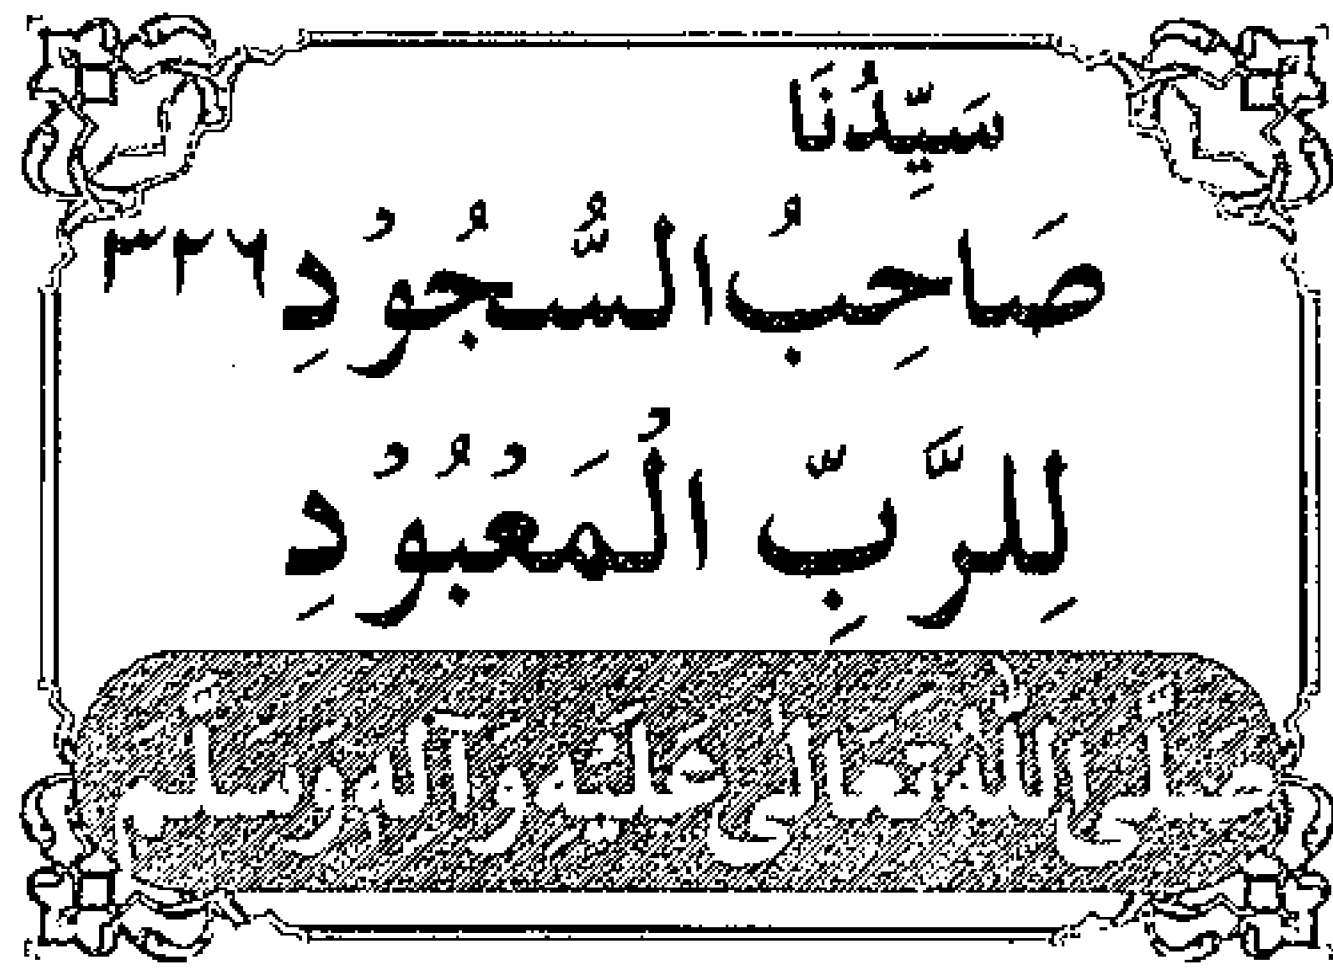 سَيِّدُنَا
صَاحِبُ السُّجُوْدِ ٣٢٦
لِلرَّبِّ الْمَعْبُوْدِ
صَلَّى اللهُ تَعَالٰى عَلَيْهِ وَآلِهِ وَسَلَّم